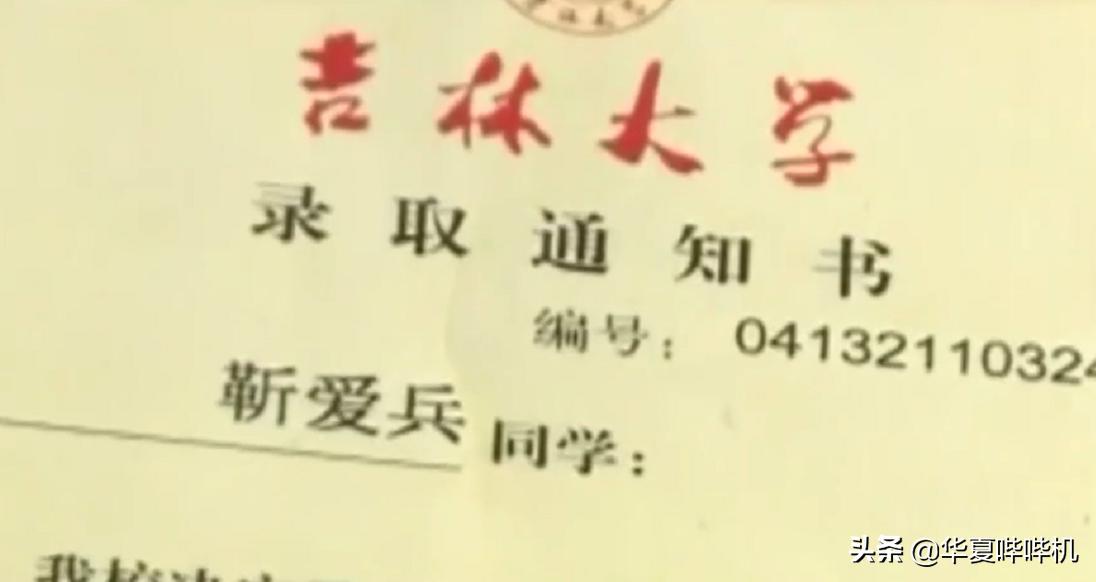 吉林大学
录取通知书
编号：04132110324
靳爱兵 同学：
我校决定
头条 @华夏哔哔机